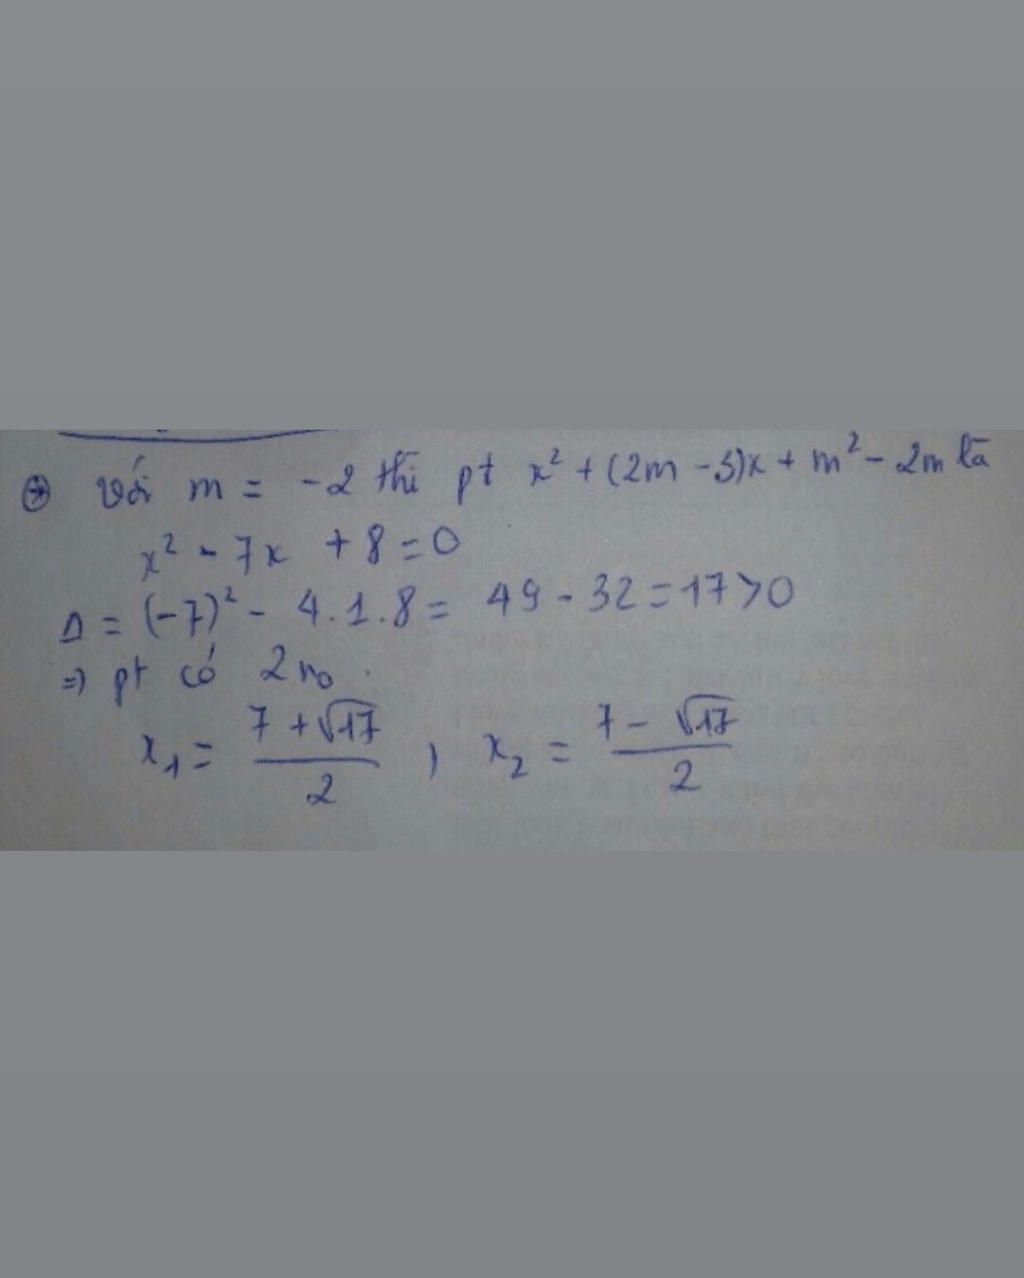 ⊛ với m = -2 thì pt x² + (2m - 3)x + m² - 2m là
x² - 7x + 8 = 0
Δ = (-7)² - 4.1.8 = 49 - 32 = 17 > 0
=> pt có 2 no.
x₁ = (7 + √17)/2 , x₂ = (7 - √17)/2